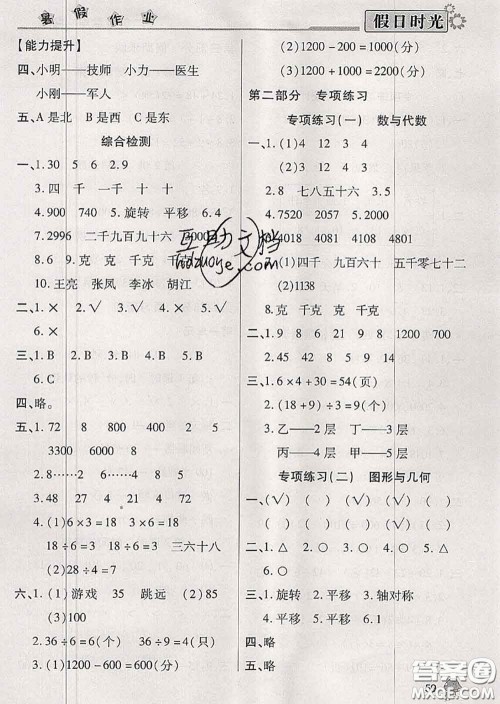 暑假作业
假日时光
【能力提升】
四、小明——技师 小力——医生
小刚——军人
五、A是北 B是西 C是东
综合检测
一、1.30 5 6 2.9
3.四 千 一千 十 十
4.900 740 5.旋转 平移 6.4
7.2996 二千九百九十六 3000
8.6 9.克 克 千克 克 千克
10.王亮 张凤 李冰 胡江
二、1.× 2.× 3.×
6.×
三、1.B 2.B 3.C
6.C
四、略。
五、1.72 8 800 400 2
3300 6000 8
2.8……2 4……4 5……5
3.48 27 4 4 72
4.(1)6×3=18 3×6=18
18÷6=3 三六十八
(2)28÷4=7
六、1.(1)游戏 35 跳远 (2)85
(3)100
2.36÷6=6(个) 36÷4=9(只)
3.(1)1200-600=600(分)
(2)1200-200=1000(分)
(3)1200+1000=2200(分)
第二部分 专项练习
专项练习(一) 数与代数
一、1.(1)4 12 3 4
(2)3 12 4 4
2.8 七八五十六 3.5
4.7520 2057 5.1904
6.4018 4081 4108 4801
7.(1)四千 九百六十 五千零七十二
(2)1138
8.克 千克 克 千克
二、1.9 8 6 21 9 1200 700
2.45 9 8 14 8 9
三、1.6×4+30=54(页)
2.(18+9)÷3=9(个)
3.乙——2层 丁——3层
丙——4层 甲——5层
专项练习(二) 图形与几何
一、(√) ( ) (√) (√)
( ) (√) ( ) (√)
二、1.△ 2.○ 3.○ 4.△
5.○ 6.△
三、1.旋转 2.平移 3.轴对称
4.平移 5.平移 6.1
四、略
五、略
互助文档
hdzuoye.com
答案圈
MXQE.COM